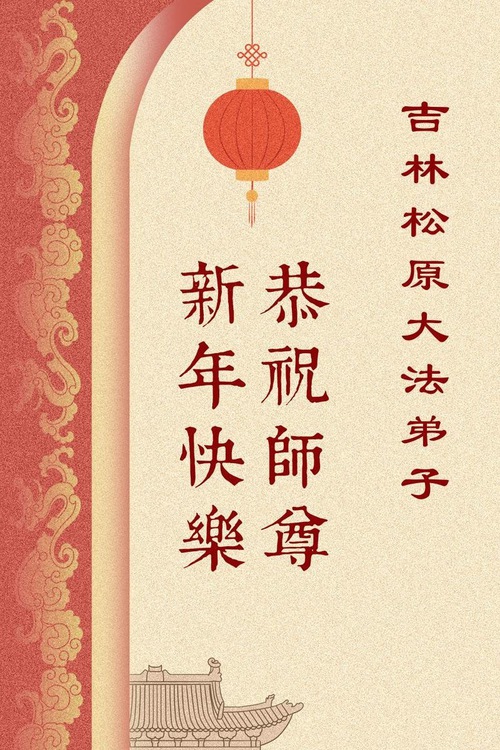 吉林松原大法弟子
恭祝師尊
新年快樂